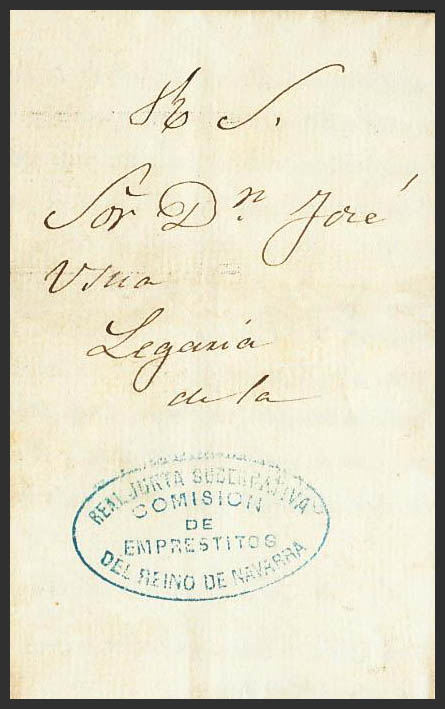 R S.
Sor Dn. José
Usua
Legaria
de la
REAL JUNTA GUBERNATIVA
COMISION
DE
EMPRESTITOS
DEL REINO DE NAVARRA